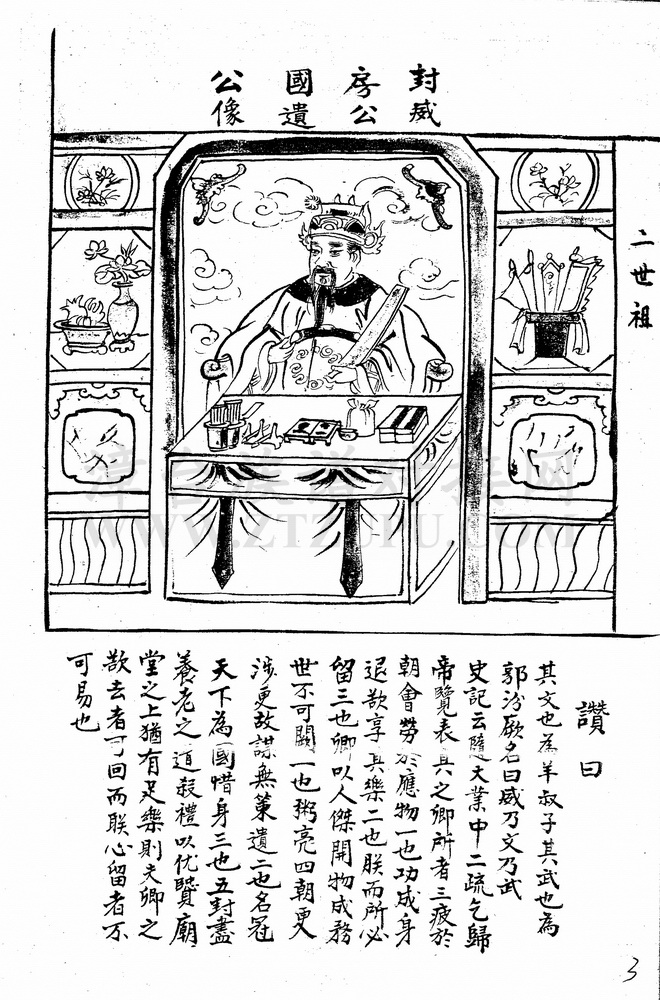 封威
房公
國遺
公像
二世祖
讚曰
其文也為羊叔子其武也為
郭汾厥名曰威乃文乃武
史記云隨大業中二疏乞歸
帝覽表具之卿所者三疲於
朝會勞於應物一也功成身
退欲享其樂二也朕而所必
留三也卿以人傑開物成務
世不可闕一也弼亮四朝更
涉更故謀無策遺二也名冠
天下為國惜身三也五封盡
養老之道殺禮以优贤廟
堂之上猶有足樂則夫卿之
欲去者可回而朕心留者不
可易也
3
WWW.ZTZUPU.COM